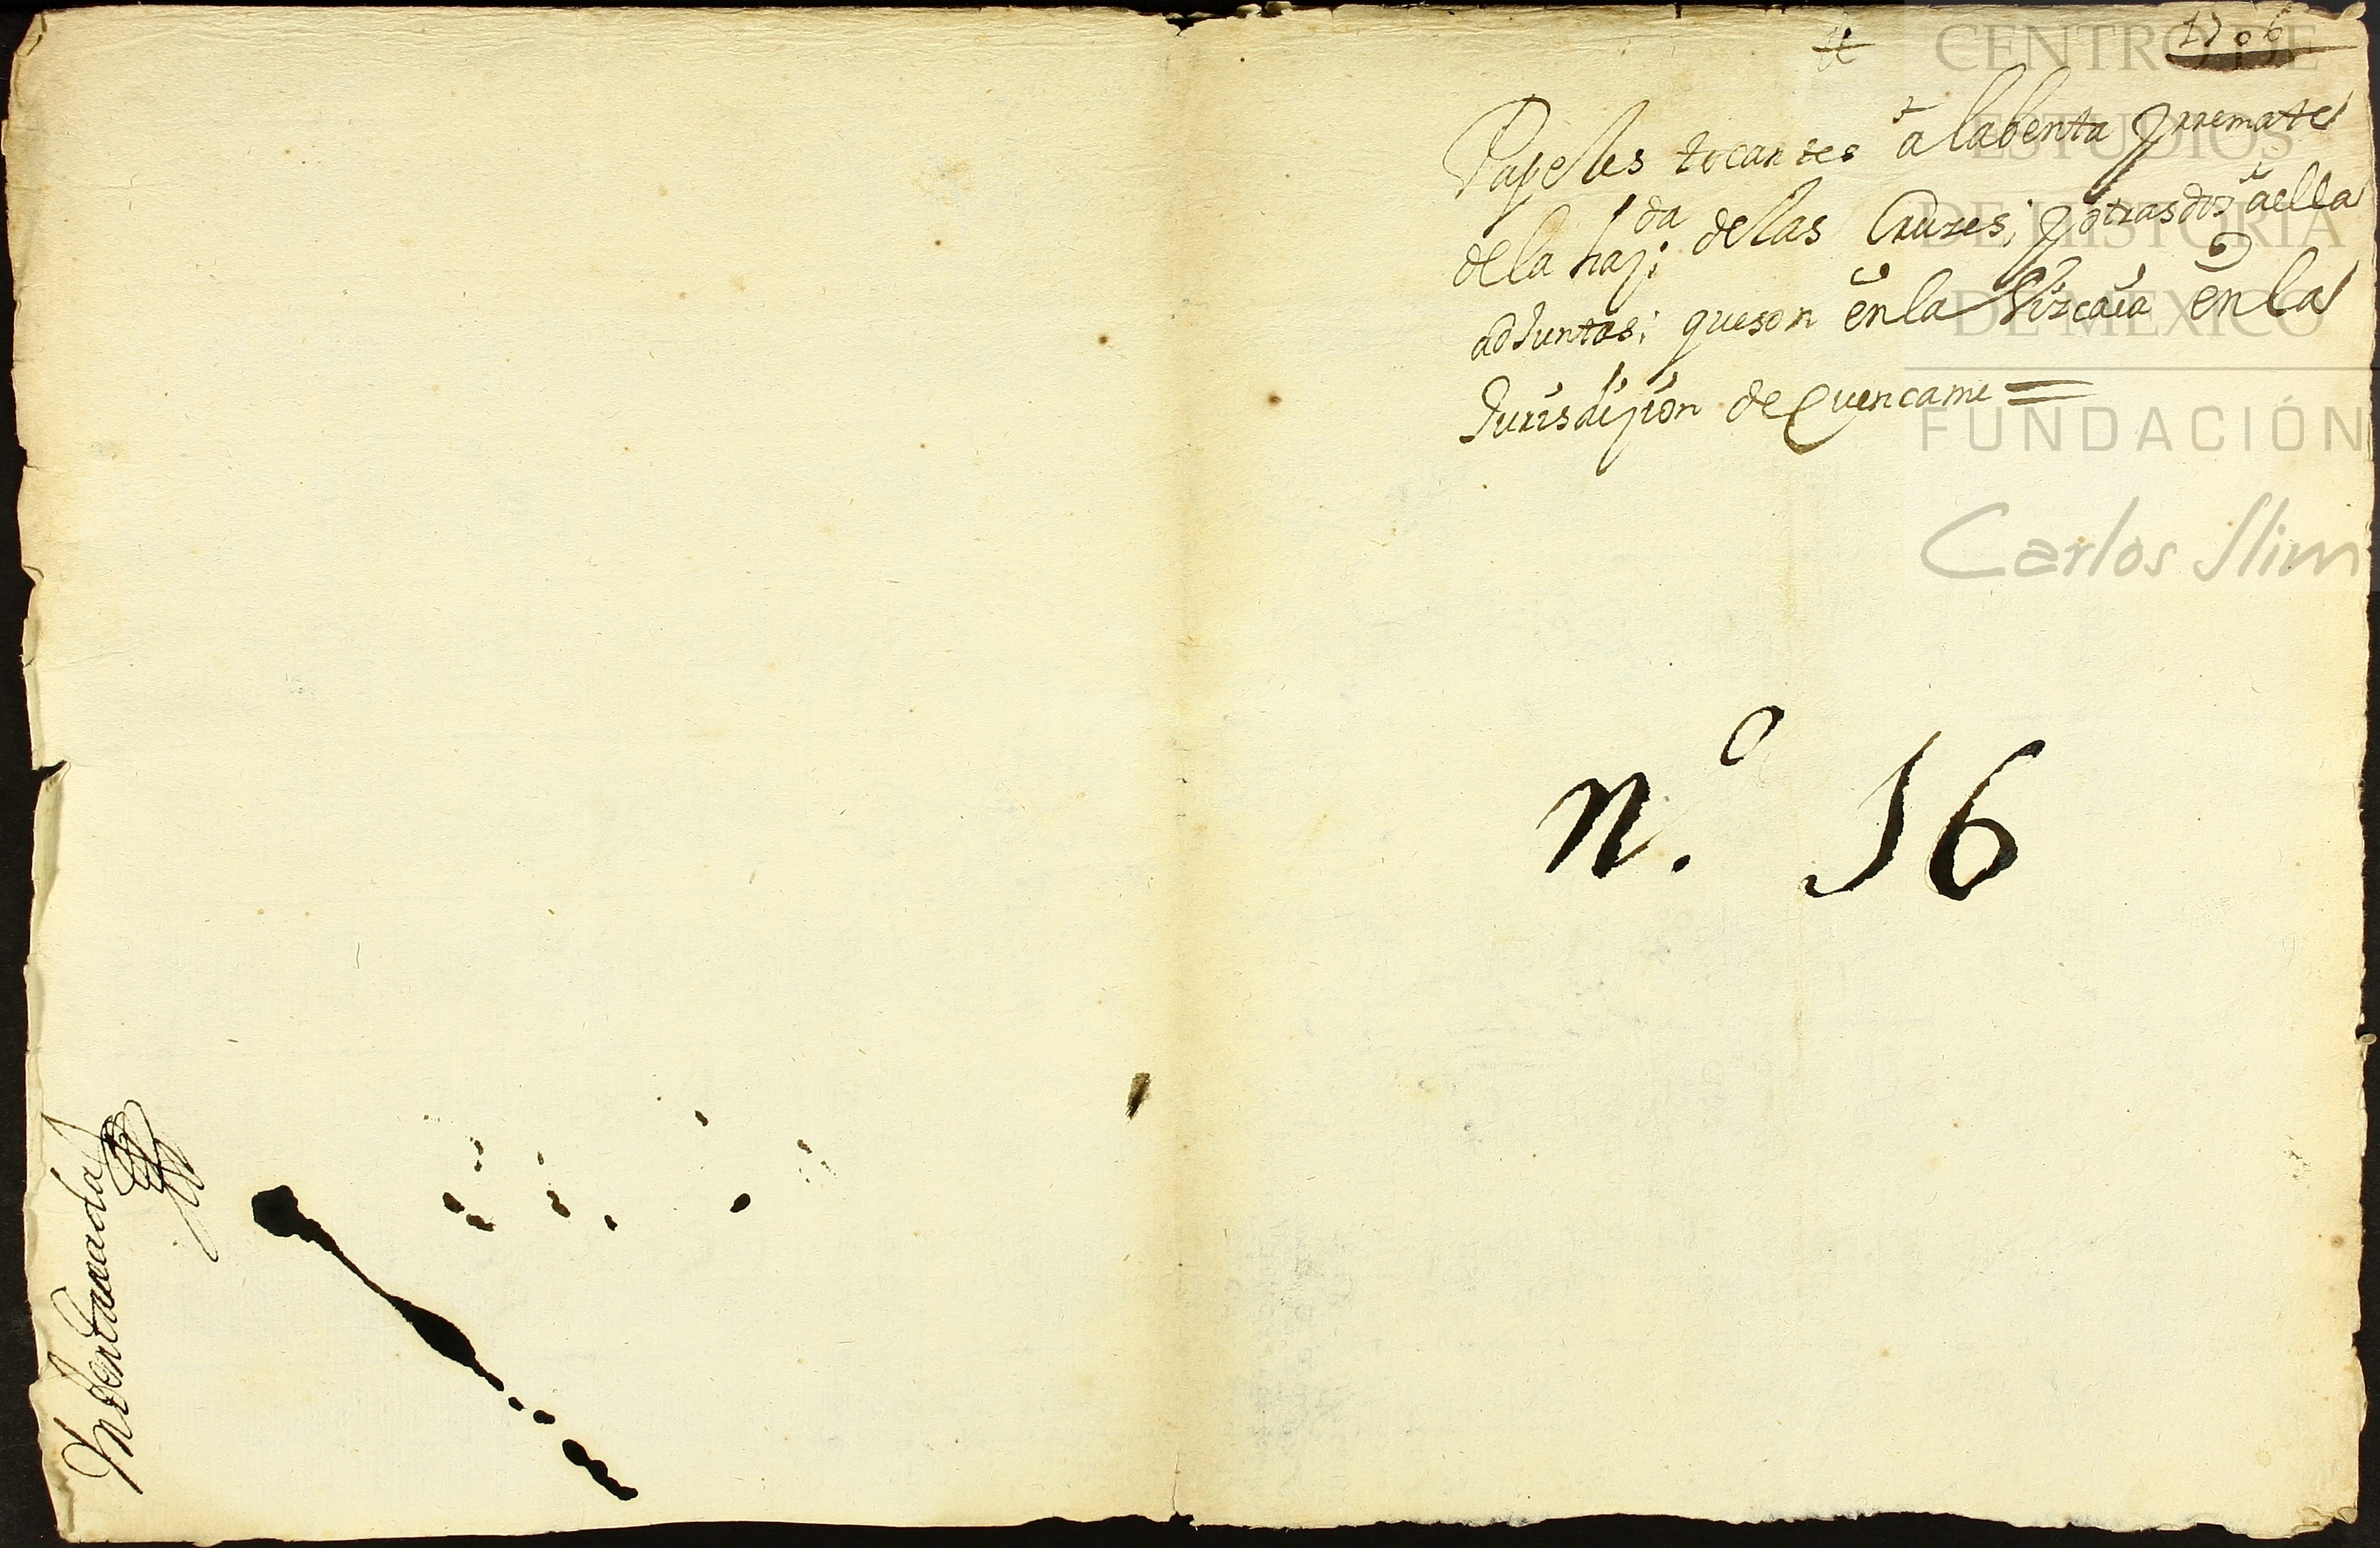 Inbentariada
1706
Papeles tocantes a labenta y rremate
de la haz.da de las Cruzes; y otras dos a ella
adjuntas; queson en la Vizcaia en la
Jurisdizion de Cuencame =
n.o 16
CENTRO DE
ESTUDIOS
DE HISTORIA
DE MÉXICO
FUNDACIÓN
Carlos Slim